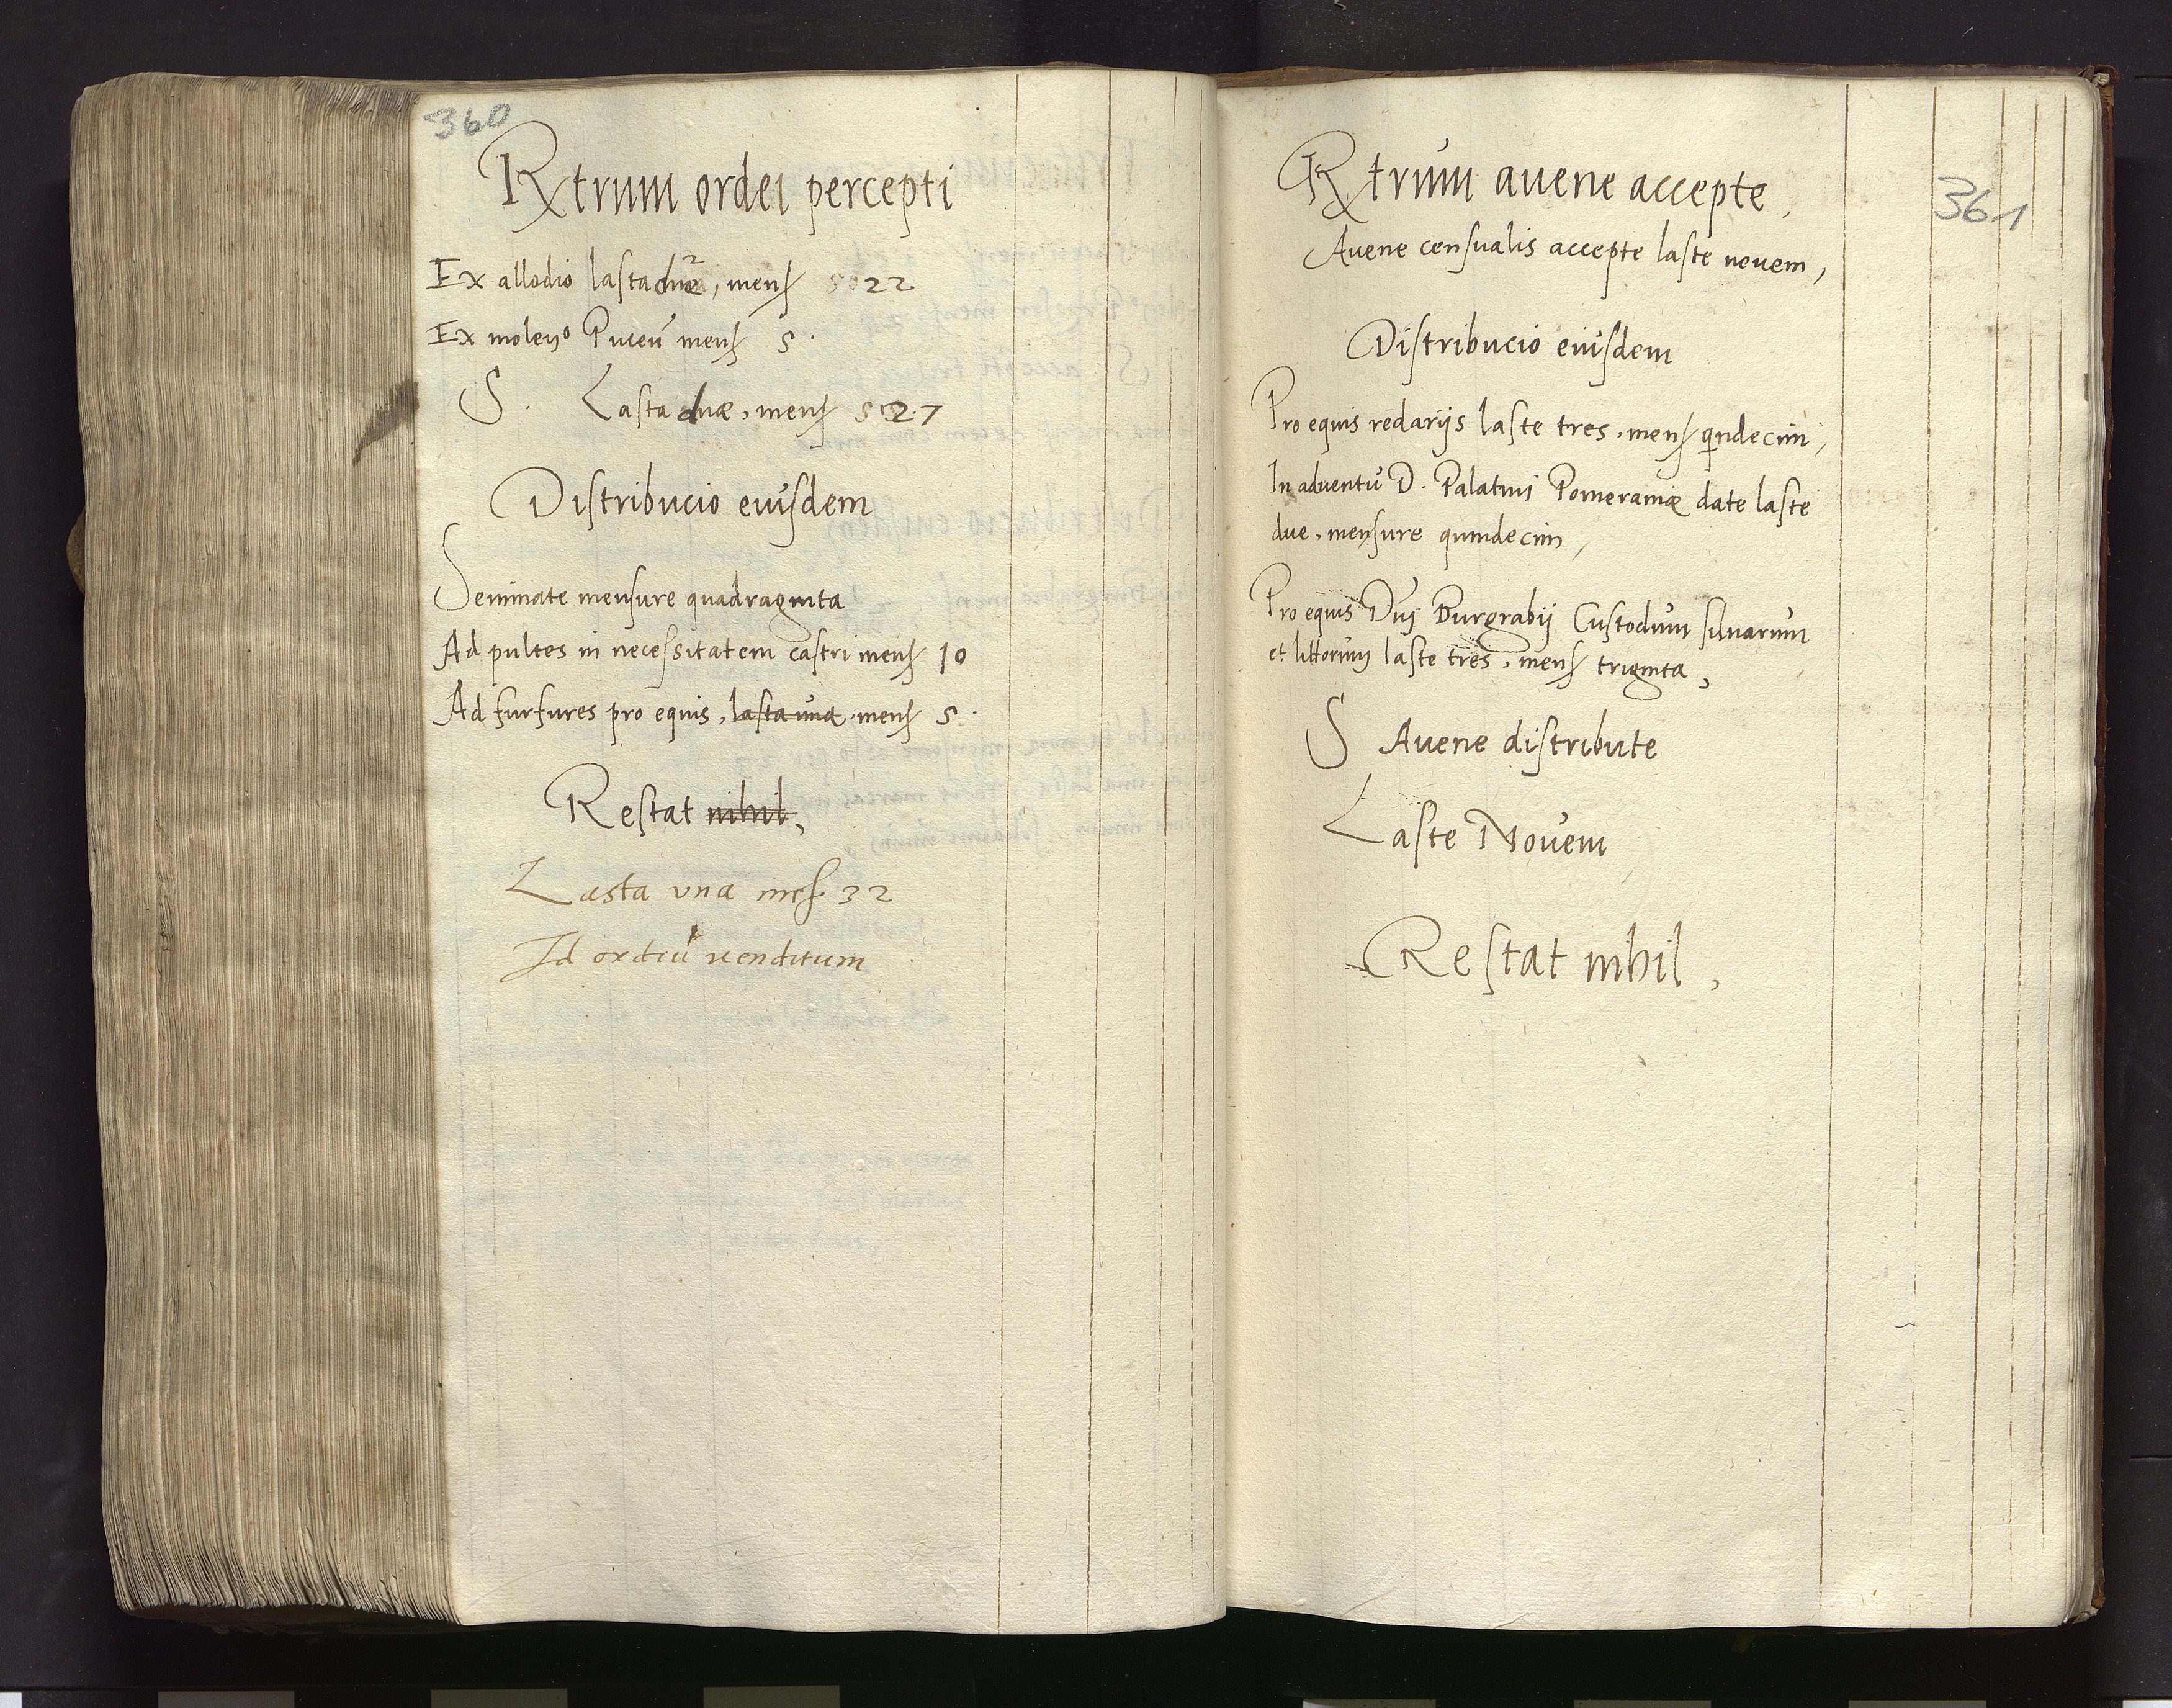 360
Rxtrum ordei percepti
Ex allodio lasta duæ, mens 22
Ex molen⁰ Puceñ mens 5.
S. Lasta duæ, mens 27
Distribucio eiusdem
Seminate mensure quadraginta
Ad pultes in necessitatem castri mens 10
Ad furfures pro equis, lasta una, mens 5.
Restat nihil,
Lasta vna mes 32
Id ordeũ venditum
361
Rxtrum auene accepte,
Auene censualis accepte laste novem,
Distribucio eiusdem
Pro equis redarijs laste tres, mens qindecim,
In adventu D. Palatini Pomeraniæ date laste
due, mensure quindecim,
Pro equis Dni Burgrabij Custodum silvarum
et littorum laste tres, mens triginta,
S Auene distribute
Laste Novem
Restat nihil,